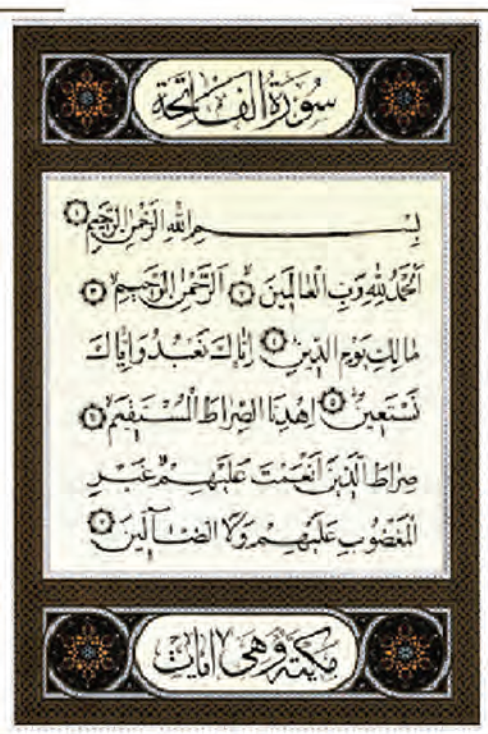 سُورَةُ الْفَاتِحَةِ
بِسْمِ اللهِ الرَّحْمٰنِ الرَّحِيمِ ۱
اَلْحَمْدُ لِلّٰهِ رَبِّ الْعَالَمِينَ ۲ اَلرَّحْمٰنِ الرَّحِيمِ ۳
مَالِكِ يَوْمِ الدِّينِ ۴ اِيَّاكَ نَعْبُدُ وَاِيَّاكَ
نَسْتَعِينُ ۵ اِهْدِنَا الصِّرَاطَ الْمُسْتَقِيمَ ۶
صِرَاطَ الَّذِينَ اَنْعَمْتَ عَلَيْهِمْ غَيْرِ
الْمَغْضُوبِ عَلَيْهِمْ وَلَا الضَّٓالِّينَ ۷
مَكِّيَّةٌ وَهِيَ ۷ اٰيَاتٍ